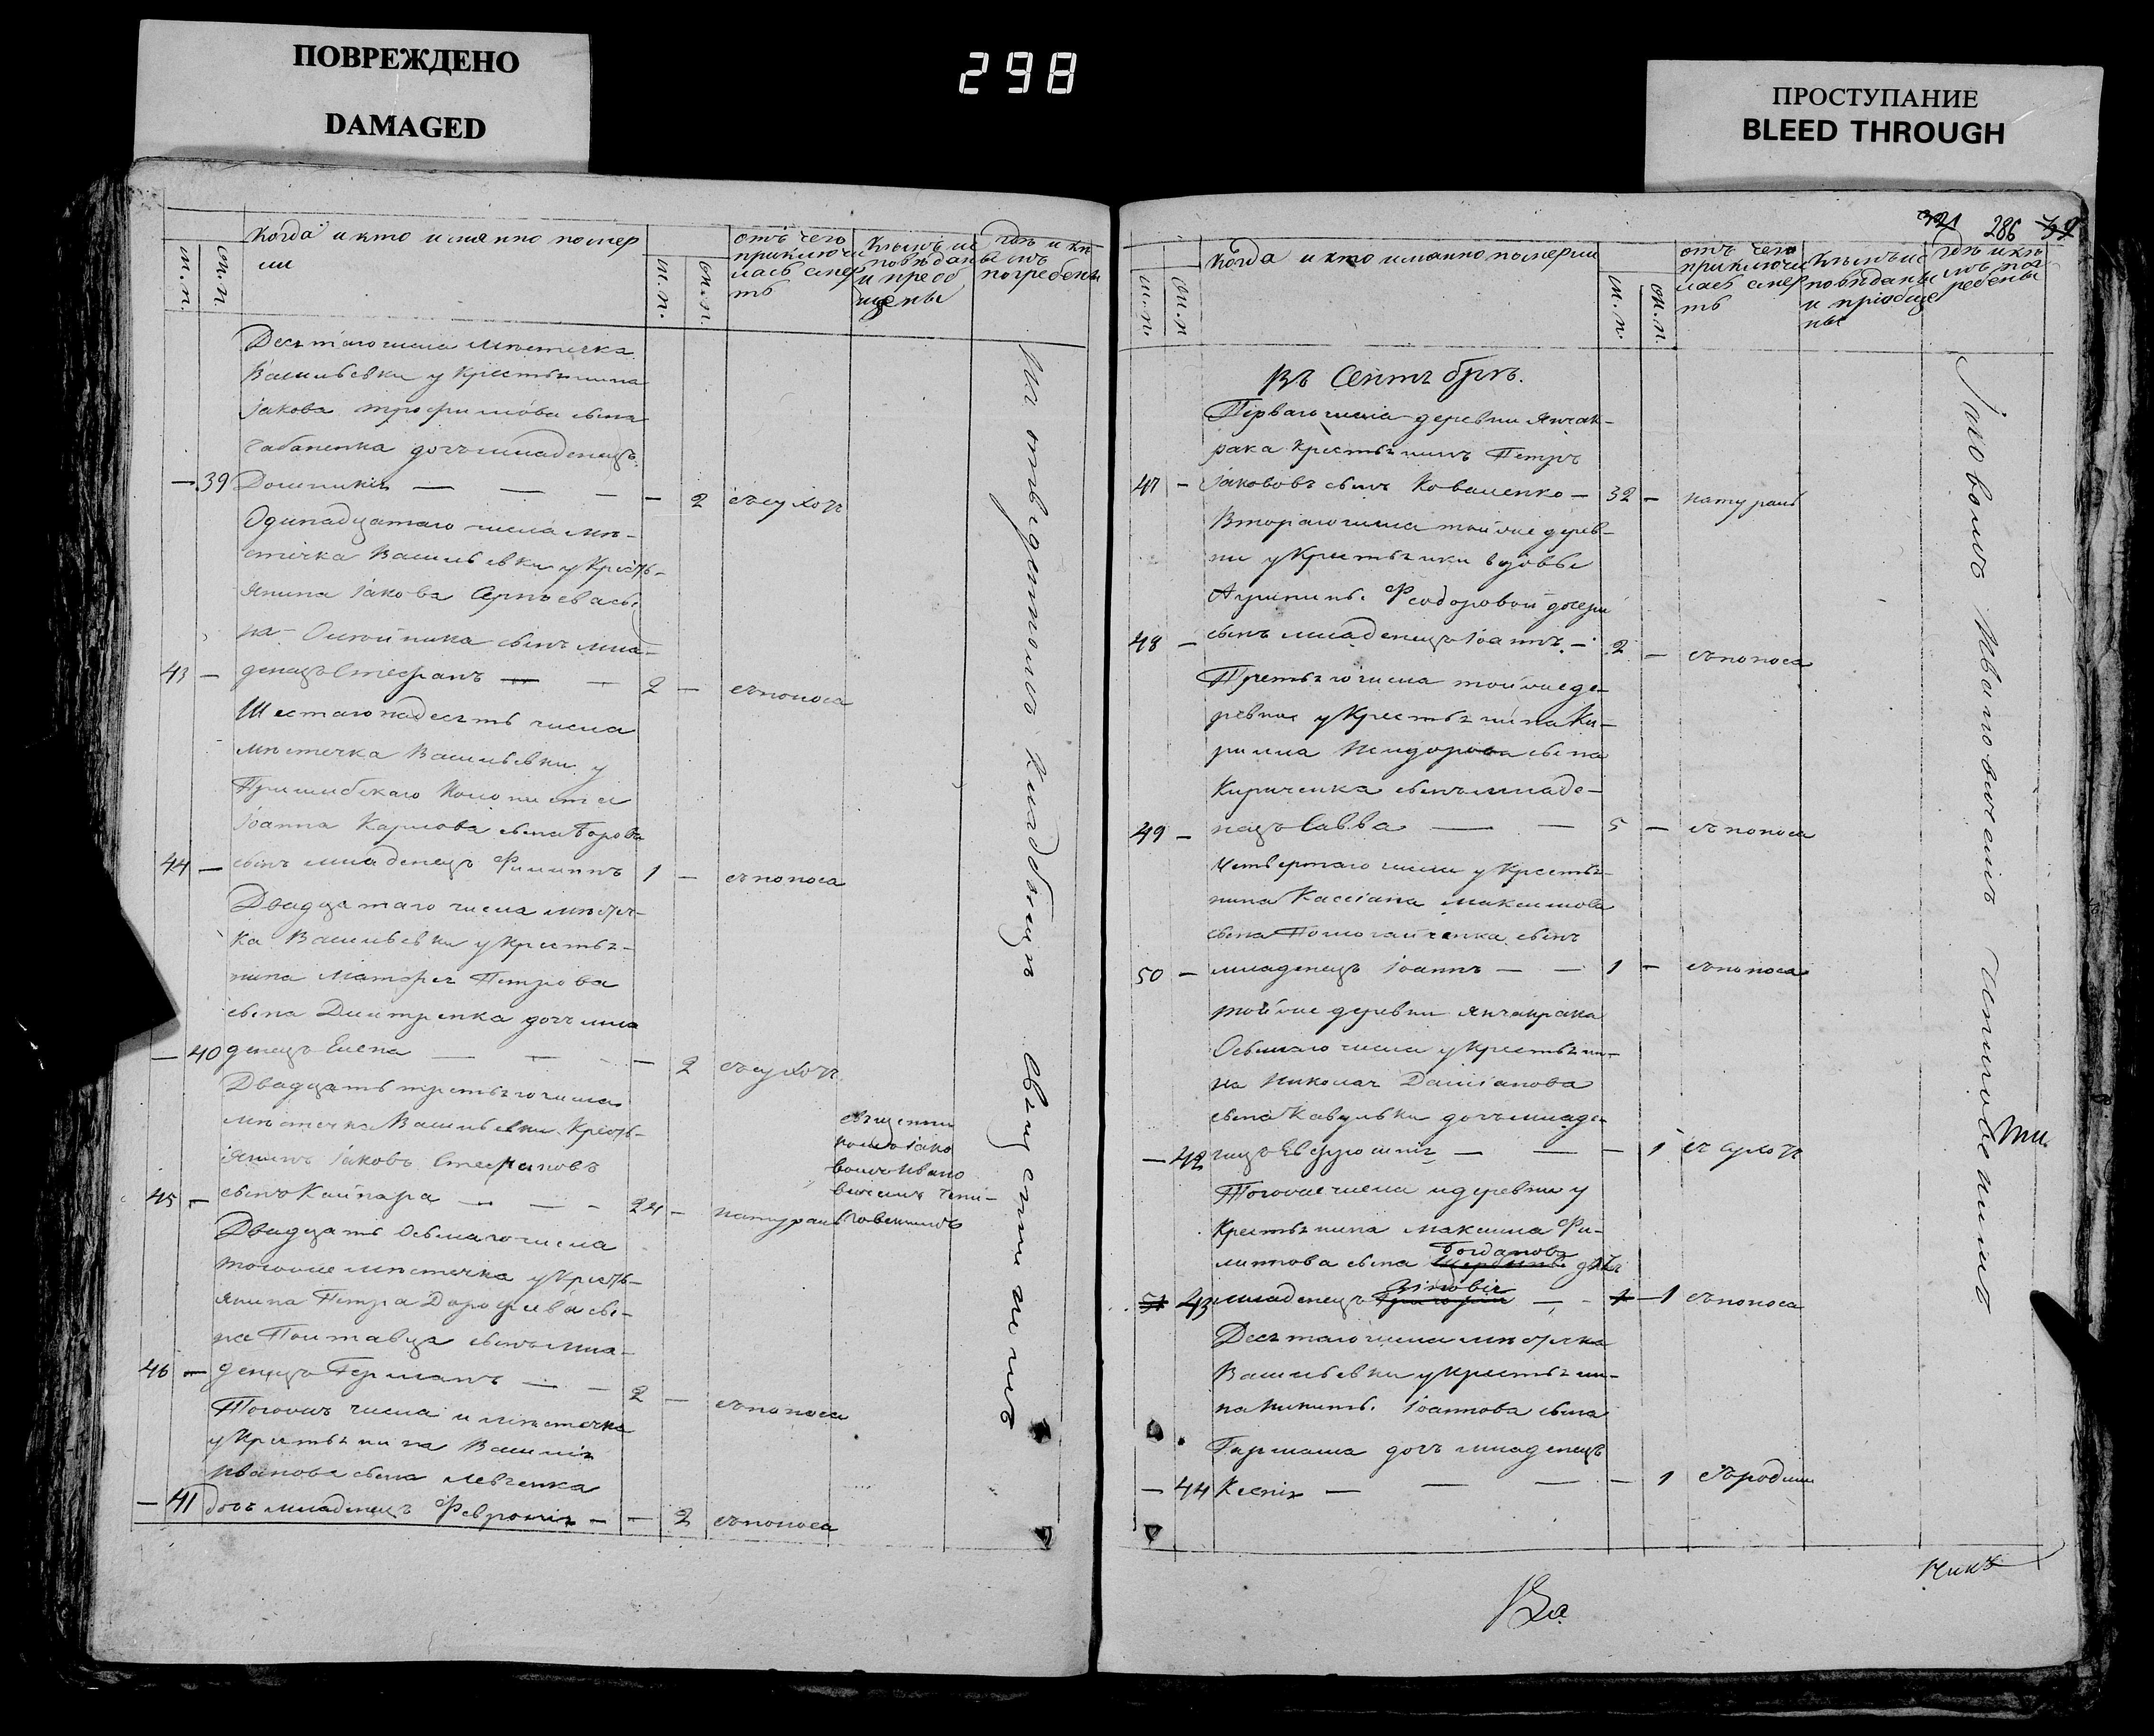 ПОВРЕЖДЕНО
DAMAGED
298
ПРОСТУПАНИЕ
BLEED THROUGH
Когда и кто именно помер
ли
м.п.
м.п.
отъ чего
приключи
лась смер
ть
Кѣмъ ис
повѣданы
и преоб
щены
гдѣ и кѣ
мъ
погребены
Десятаго числа мѣстечка
Васильевки у Крестьянина
Іакова Трофимова сына
Чабаненка дочь младенецъ
39 Домникія — — — — 2 съсухотъ
Одинадцатаго числа мѣ-
стечка Васильевки у Кресть-
янина Іакова сы-
на Олійника сынъ мла-
43 — денецъ Стефанъ — — 2 — съпоноса
Шестагонадесять числа
мѣстечка Васильевки у
Пришибскаго Колониста
Іоанна Карлова сына
44 — сынъ младенецъ Филиппъ 1 — съпоноса
Двадцатаго числа мѣстеч-
ка Васильевки у Крестья-
нина Матфея Петрова
сына Дмитренка дочь мла
— 40 денецъ Елена — — — 2 съсухотъ
Двадцать третьяго числа
мѣстечка Васильевки Кресть-
янинъ Іаковъ Стефановъ
45 — сынъ Кайпара — — — 24 — натурань
священни
комъ Іако
вомъ Ивано
вичемъ
Двадцать Осьмаго числа
тогоже мѣстечка у Кресть-
янина Петра Дорофѣева сы-
на Полтавца сынъ мла-
46 — денецъ Германъ — — 2 — съпоноса
Тогожъ числа и мѣстечка
у Крестьянина Василія
Иванова сына Левченка
— 41 дочь младенецъ Февронія — — 2 съпоноса
На отведенномъ Кладбищѣ священникомъ
321 286
Когда и кто именно померли
м.п.
м.п.
отъ чего
приключи
лась смер
ть
Кѣмъ ис
повѣданы
и пріобще
ны
гдѣ и кѣ
мъ пог
ребены
Въ Сентябрѣ.
Перваго числа деревни Янчак-
рака Крестьянинъ Петръ
47 — Іакововъ сынъ Коваленко — 32 — натурань
Втораго числа тойже дерев-
ни у Крестьянки вдовы
Агрипины Феодоровой дочери
48 — сынъ младенецъ Іоаннъ — 2 — съпоноса
Третьяго числа тойже де-
ревни у Крестьянина Ки-
рилла сына
Кириченка сынъ младе-
49 — нецъ Савва — — 5 — съпоноса
Четвертаго числа у Крестья-
нина Кассіана Максимова
сына сынъ
50 — младенецъ Іоаннъ — — 1 — съпоноса
тойже деревни Янчакрака
Осьмаго числа у Крестьяни-
на Николая Даміанова
сына Кавульки дочь младе-
— 42 нецъ Евфросинія — — — 1 съ сухотъ
Тогоже числа и деревни у
Крестьянина Максима Фи-
липпова сына Богданова дочь
51 43 младенецъ Зиновія — - 1 — 1 съпоноса
Десятаго числа мѣстечка
Васильевки у Крестьяни-
на Никиты Іоаннова сына
Гармаша дочь младенецъ
— 44 Ксенія — — — — 1 съродими
Іаковомъ Ивановичемъ